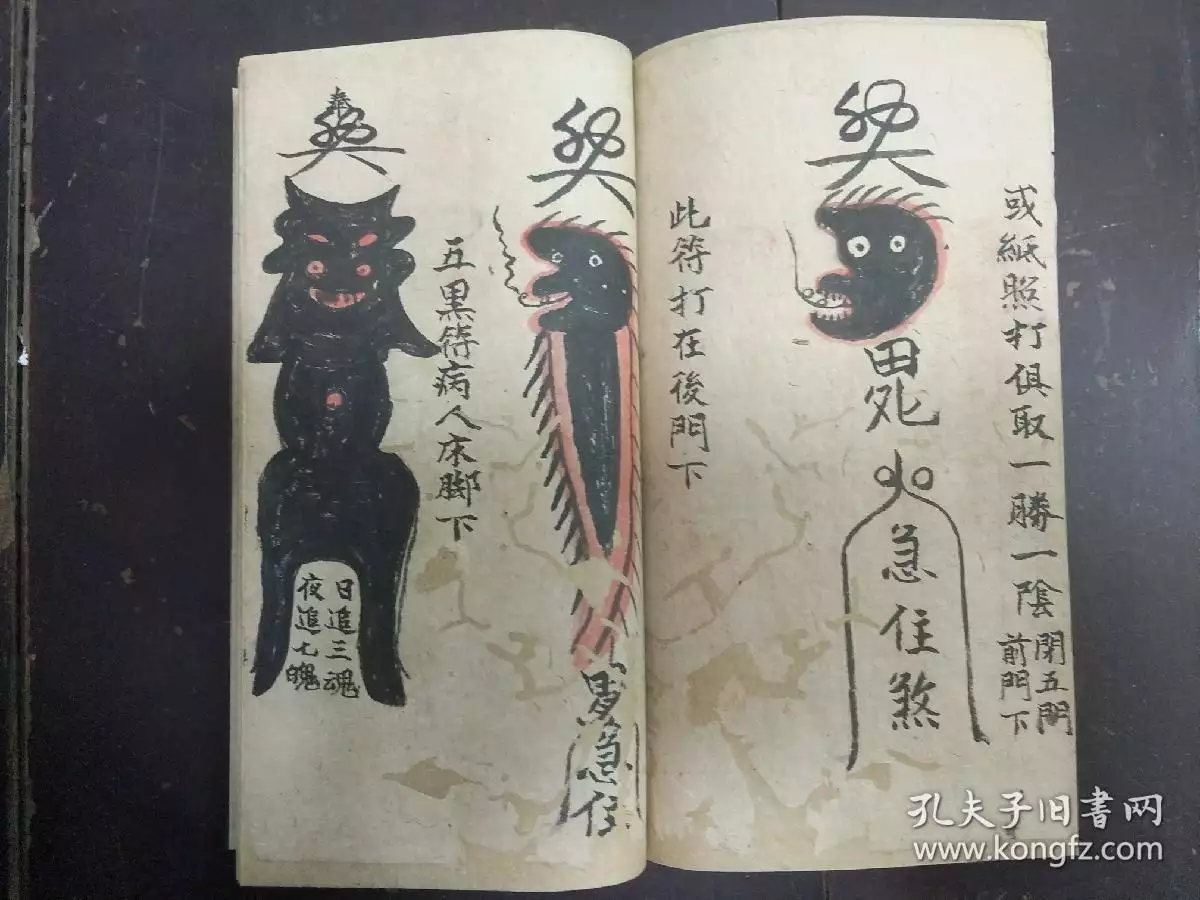 或紙照打俱取一勝一陰
閉五門
前門下
急住煞
此符打在後門下
急住
五黑符病人床脚下
奉
日追三魂
夜追七魄
孔夫子旧书网
www.kongfz.com